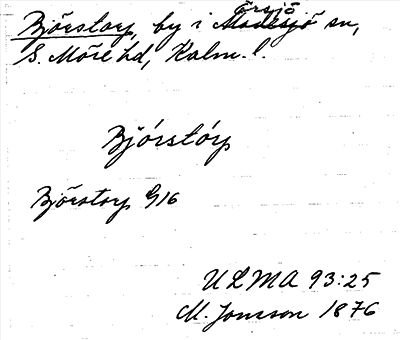 Björstorp, by i Madesjö Örsjö sn,
S. Möre hd, Kalm. l.
Bjórstórp
Björstorp G16
ULMA 93:25
M. Jonsson 1876